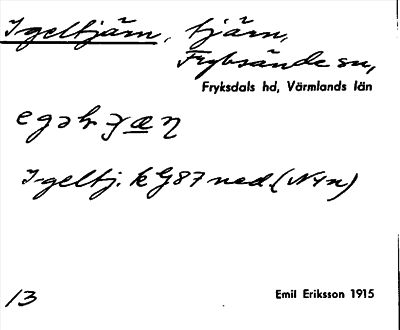 Igeltjärn, tjärn,
Fryksände sn,
Fryksdals hd, Värmlands län
Igeltj. k G87 ned. (N4n)
13
Emil Eriksson 1915